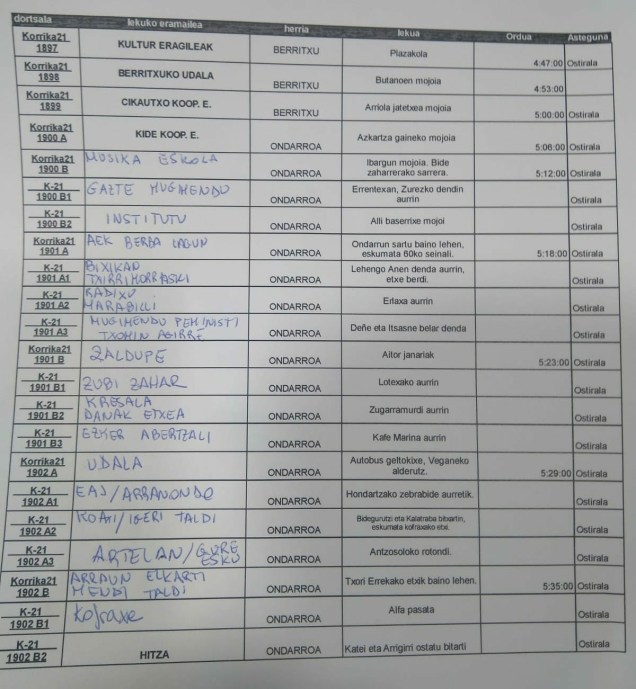 dortsala lekuko eramailea herria lekua Ordua Asteguna
Korrika21 1897 KULTUR ERAGILEAK BERRITXU Plazakola 4:47:00 Ostirala
Korrika21 1898 BERRITXUKO UDALA BERRITXU Butanoen mojoia 4:53:00
Korrika21 1899 CIKAUTXO KOOP. E. BERRITXU Arriola jatetxea mojoia 5:00:00 Ostirala
Korrika21 1900 A KIDE KOOP. E. ONDARROA Azkartza gaineko mojoia 5:06:00 Ostirala
Korrika21 1900 B MUSIKA ESKOLA ONDARROA Ibargun mojoia. Bide zaharrerako sarrera. 5:12:00 Ostirala
K-21 1900 B1 GAZTE MUGIMENDU ONDARROA Errentexan, Zurezko dendin aurrin Ostirala
K-21 1900 B2 INSTITUTU ONDARROA Alli baserrixe mojoi Ostirala
Korrika21 1901 A AEK BERBA LAGUN ONDARROA Ondarrun sartu baino lehen, eskumata 60ko seinali. 5:18:00 Ostirala
K-21 1901 A1 BIXIKAN TXIRRIMORRASKI ONDARROA Lehengo Anen denda aurrin, etxe berdi. Ostirala
K-21 1901 A2 RADIXU MARABILLI ONDARROA Erlaxa aurrin Ostirala
K-21 1901 A3 MUGIMENDU FEMINISTI TXOMIN AGIRRE ONDARROA Deñe eta Itsasne belar denda Ostirala
Korrika21 1901 B ZALDUPE ONDARROA Aitor janariak 5:23:00 Ostirala
K-21 1901 B1 ZUBI ZAHAR ONDARROA Lotexako aurrin Ostirala
K-21 1901 B2 KRESALA DANAK ETXEA ONDARROA Zugarramurdi aurrin Ostirala
K-21 1901 B3 EZKER ABERTZALI ONDARROA Kafe Marina aurrin Ostirala
Korrika21 1902 A UDALA ONDARROA Autobus geltokixe, Veganeko alderutz. 5:29:00 Ostirala
K-21 1902 A1 EAJ/ARRANONDO ONDARROA Hondartzako zebrabide aurretik. Ostirala
K-21 1902 A2 IGERI TALDI ONDARROA Bidegurutzi eta Kalatraba bitartin, eskumata kofraxako etxi. Ostirala
K-21 1902 A3 ARTELAN/GURE ESKU ONDARROA Antzosoloko rotondi. Ostirala
Korrika21 1902 B ARRAUN ELKARTI MENDI TALDI ONDARROA Txori Errekako etxik baino lehen. 5:35:00 Ostirala
K-21 1902 B1 Kofraxe ONDARROA Alfa pasata Ostirala
K-21 1902 B2 HITZA ONDARROA Katei eta Arrigirri ostatu bitarti Ostirala